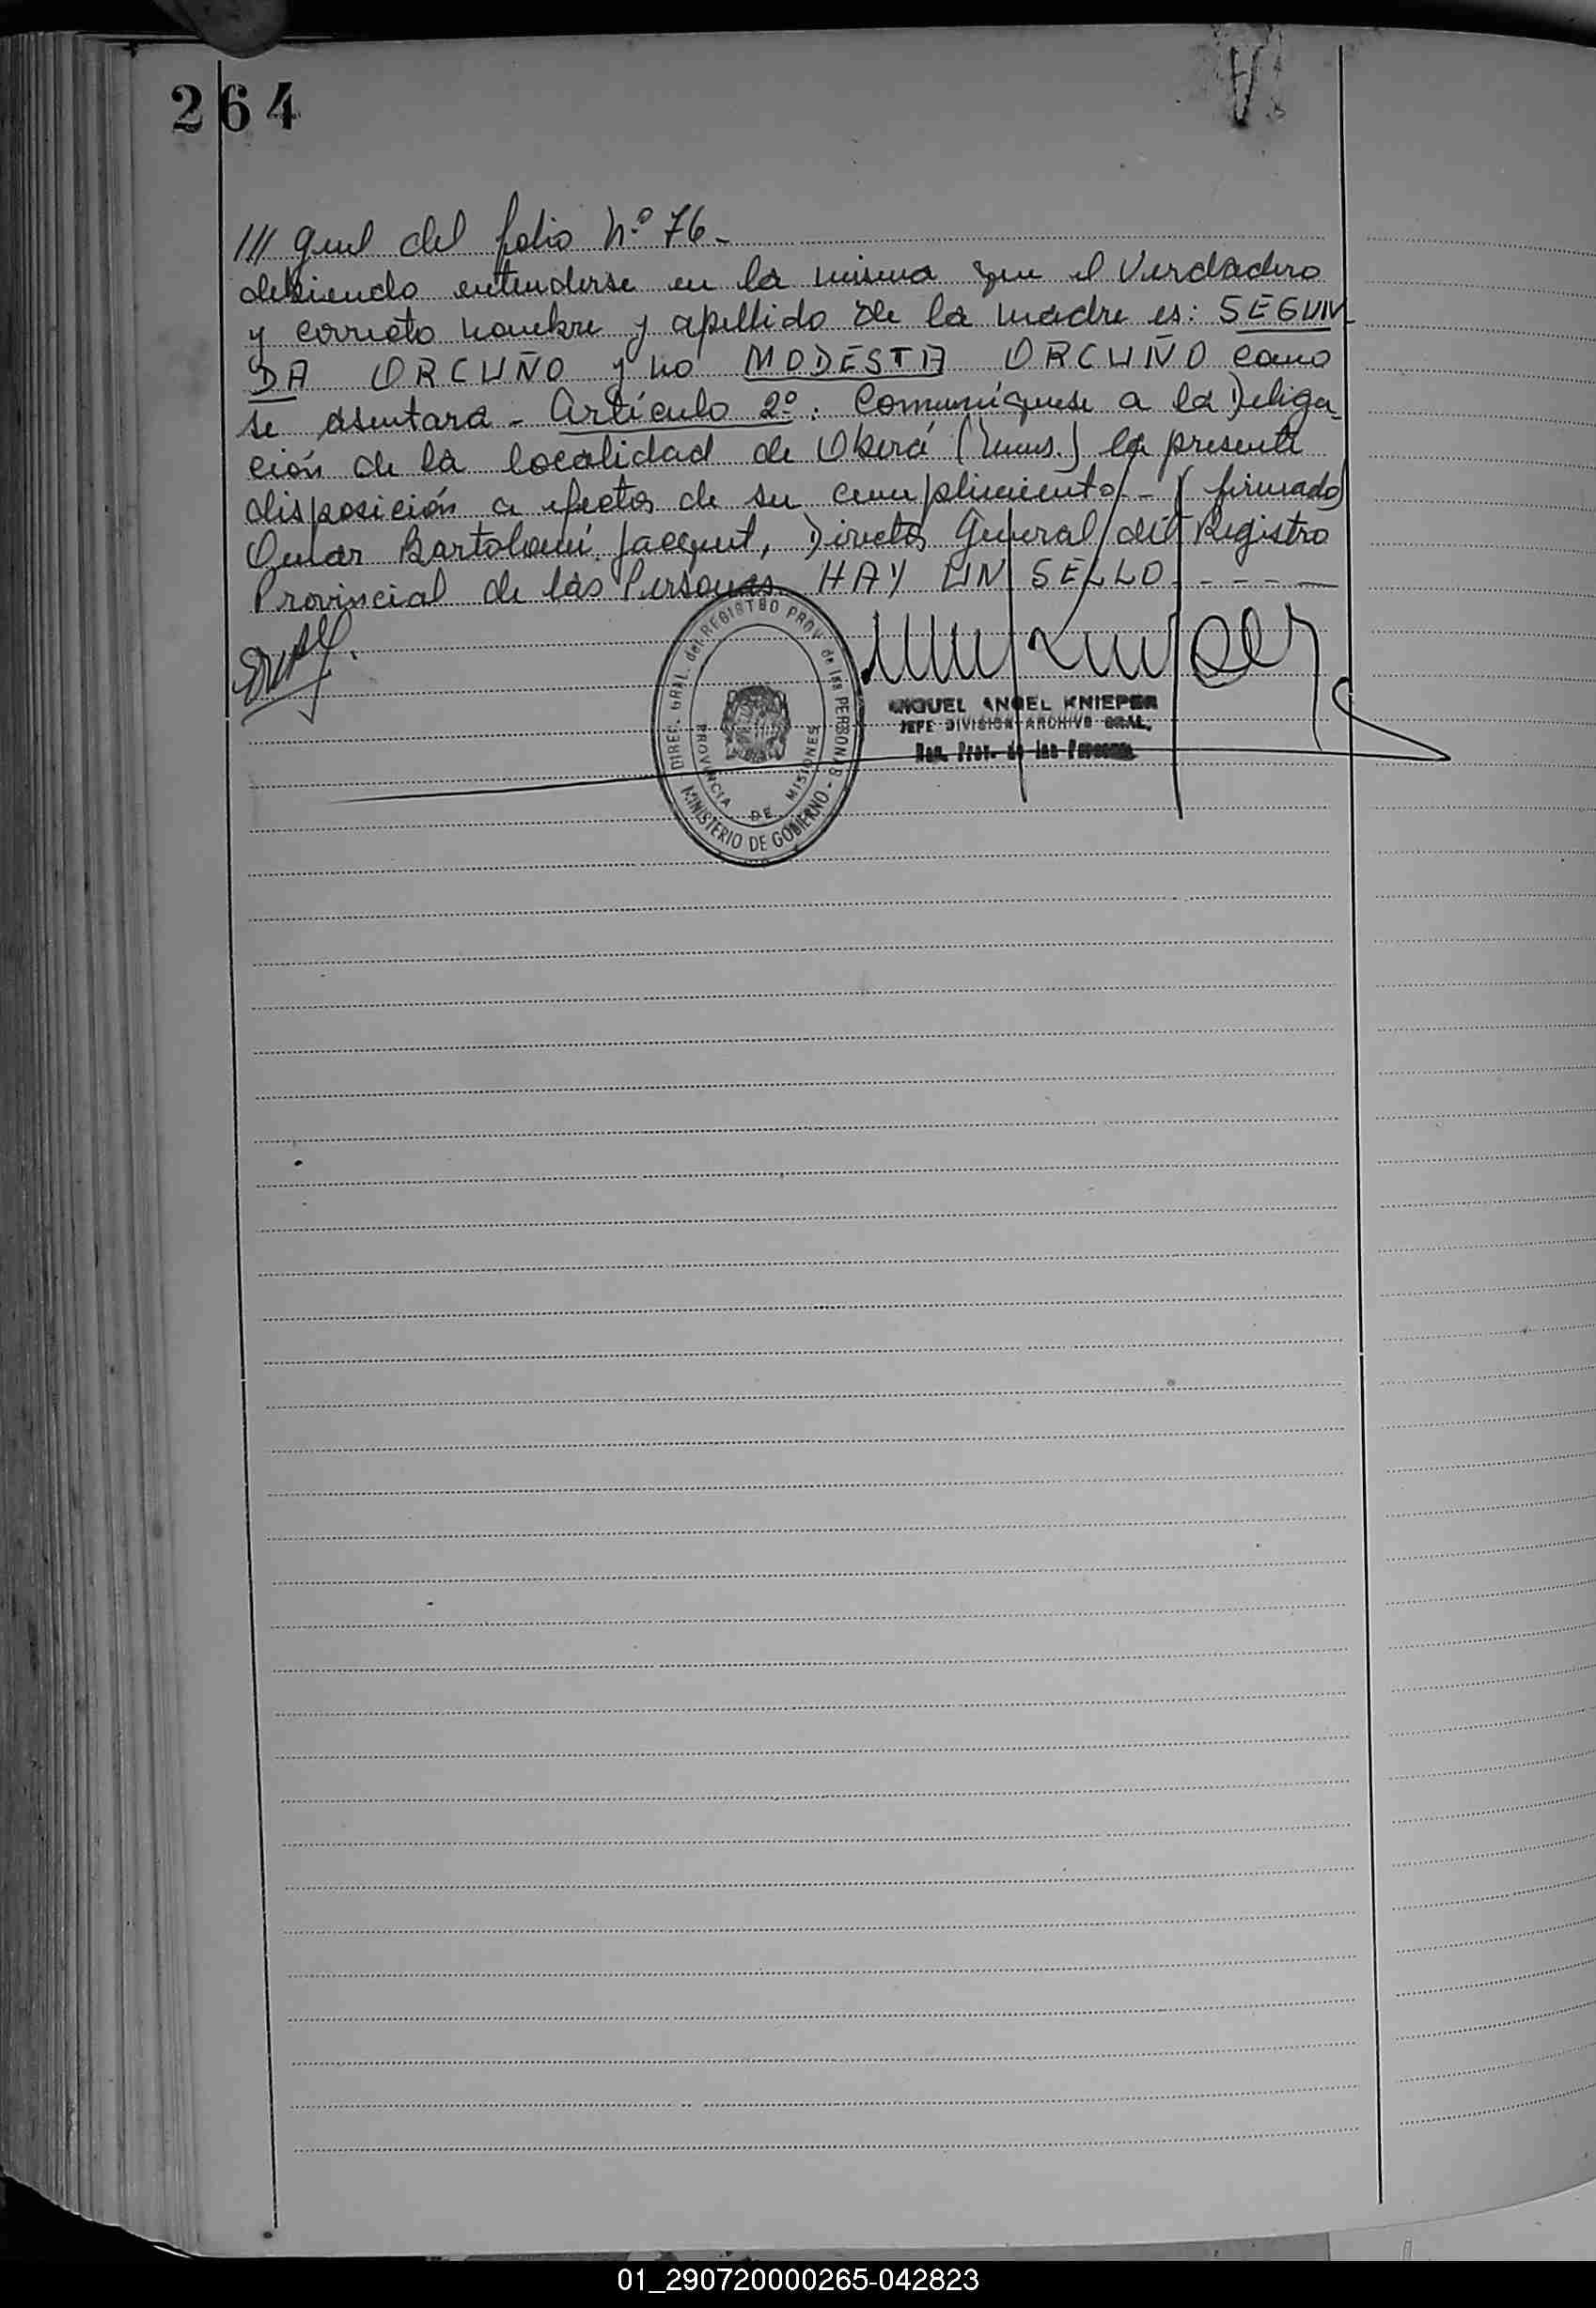 264
/// ginal del folio Nº 76.-
debiendo entenderse en la misma que el verdadero
y correcto nombre y apellido de la madre es: SEGUN-
DA ORCUÑO y no MODESTA ORCUÑO como
se asentara - Artículo 2º: Comuníquese a la Deliga-
ción de la localidad de Oberá (Mnes.) la presente
disposición a efectos de su cumplimiento - (firmado)
Omar Bartolomé Jacquet, Director General del Registro
Provincial de las Personas. HAY UN SELLO - - - - -
DIREC. GRAL. del REGISTRO PROV. de las PERSONAS
PROVINCIA DE MISIONES
MINISTERIO DE GOBIERNO
MIGUEL ANGEL KNIEPER
JEFE DIVISION ARCHIVO GRAL.
Reg. Prov. de las Personas
01_290720000265-042823